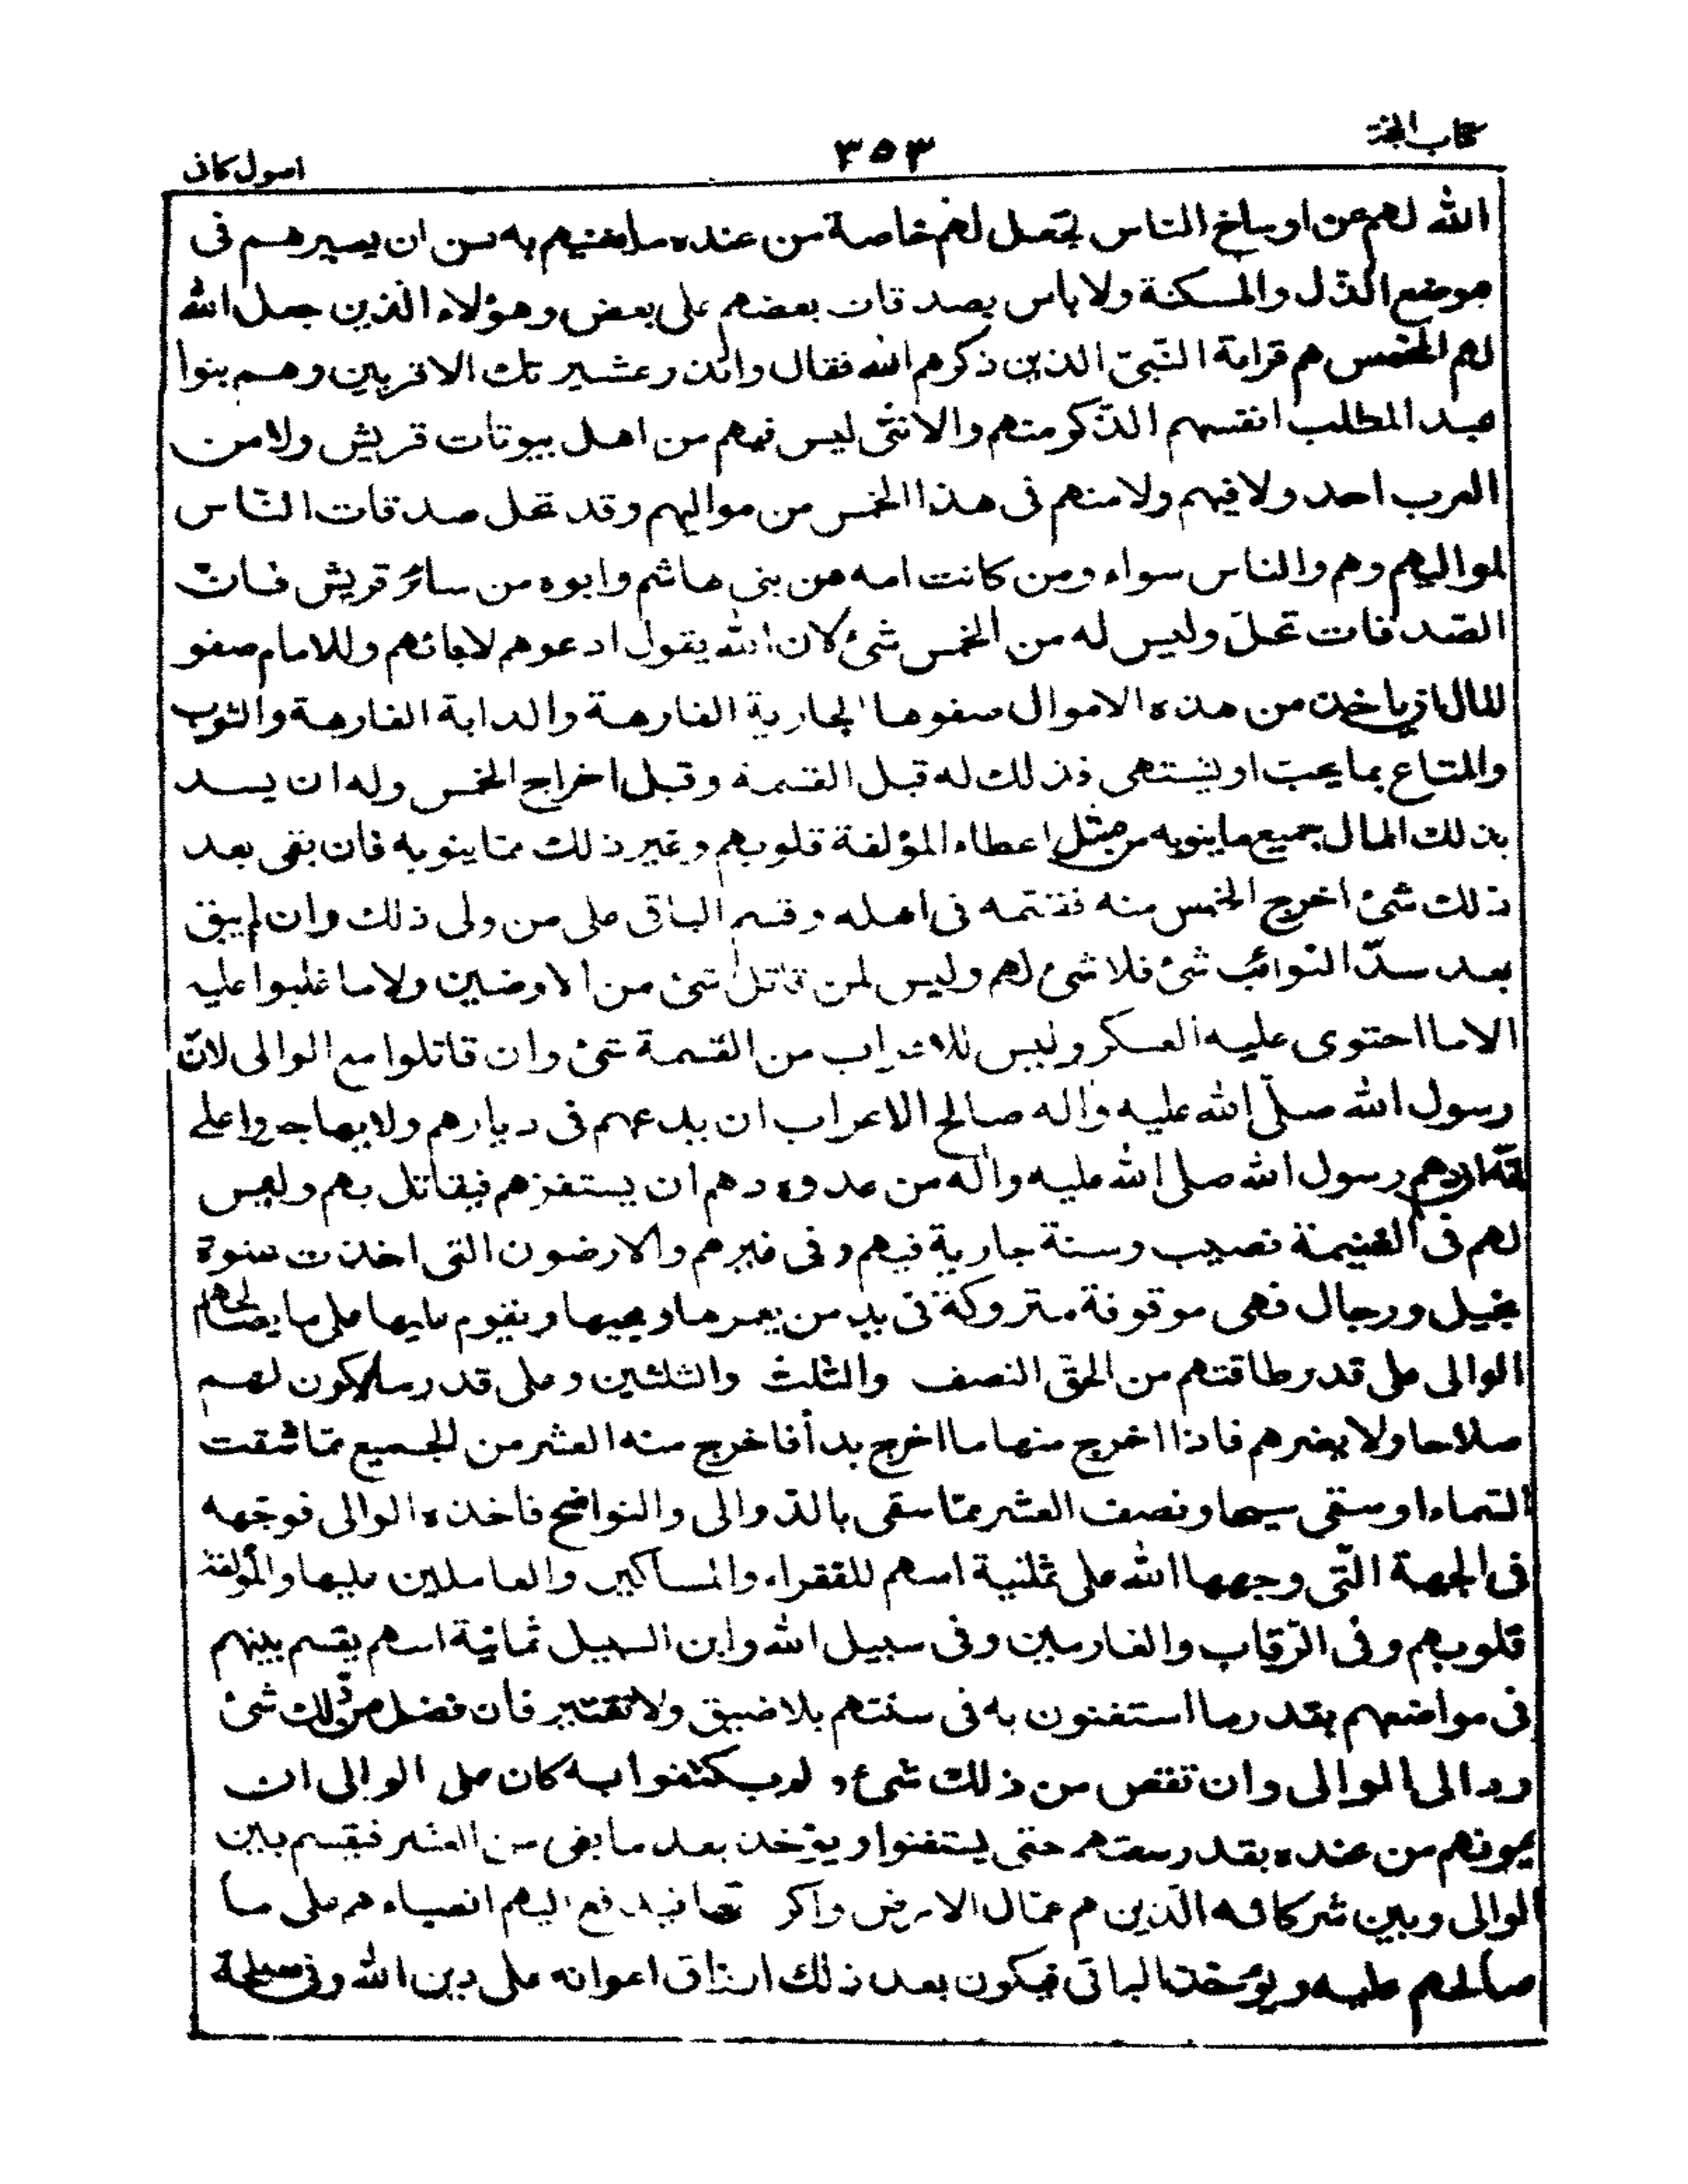 كتاب الحجة
۳۵۳
اصول كافى
الله لهم عن اوساخ الناس تجعل لهم خاصة من عنده ما يغنيهم به من ان يصيرهم فى
موضع الذّل والمسكنة ولا باس بصدقات بعضهم على بعض وهؤلاء الذين جعل الله
لهم الخمس هم قرابة النّبىّ الذين ذكرهم الله فقال وانذر عشيرتك الاقربين وهم بنوا
عبد المطلب انفسهم الذّكر منهم والانثى ليس فيهم من اهل بيوتات قريش ولا من
العرب احد ولا فيهم ولا منهم فى هذا الخمس من مواليهم وقد تحل صدقات النّاس
لمواليهم وهم والناس سواء ومن كانت امه من بنى هاشم وابوه من سائر قريش فان
الصّدقات تحلّ وليس له من الخمس شئ لان الله يقول ادعوهم لابائهم وللامام صفو
المال ان ياخذ من هذه الاموال صفوها الجارية الفارهة والدابة الفارهة والثوب
والمتاع بما يحب او يشتهى فذلك له قبل القسمة وقبل اخراج الخمس وله ان يسد
بذلك المال جميع ما ينوبه من مثل اعطاء المؤلفة قلوبهم وغير ذلك ممّا ينوبه فان بقى بعد
ذلك شئ اخرج الخمس منه فقسّمه فى اهله وقسم الباقى على من ولى ذلك وان لم يبق
بعد سدّ النوائب شئ فلا شئ لهم وليس لمن قاتل شئ من الارضين ولا ما غلبوا عليه
الا ما احتوى عليه العسكر وليس للاعراب من القسمة شئ وان قاتلوا مع الوالى لانّ
رسول الله صلّى الله عليه واله صالح الاعراب ان يدعهم فى ديارهم ولا يهاجروا على
انّه ان دهم رسول الله صلى الله عليه واله من عدوه دهم ان يستفزهم فيقاتل بهم وليس
لهم فى الغنيمة نصيب وسنة جارية فيهم وفى غيرهم والارضون التى اخذت عنوة
بخيل ورجال فهى موقوفة متروكة فى يد من يعمرها ويحييها ويقوم عليها على ما يصالحهم
الوالى على قدر طاقتهم من الحقّ النصف والثلث والثلثين وعلى قدر ما يكون لهم
صلاحا ولا يضرهم فاذا اخرج منها ما اخرج بدأ فاخرج منه العشر من الجميع ممّا سقت
السّماء او سقى سيحا ونصف العشر ممّا سقى بالدّوالى والنواضح فاخذه الوالى فوجّهه
فى الجهة الّتى وجهها الله على ثمنية اسهم للفقراء والمساكين والعاملين عليها والمؤلفة
قلوبهم وفى الرّقاب والغارمين وفى سبيل الله وابن السبيل ثمانية اسهم يقسم بينهم
فى مواضعهم بقدر ما استغنون به فى سنتهم بلا ضيق ولا تقتير فان فضل من ذلك شئ
رد الى الوالى وان نقص من ذلك شئ ولم يكتفوا به كان على الوالى ان
يمونهم من عنده بقدر سعتهم حتى يستغنوا ويؤخذ بعد ما بقى من العشر فيقسم بين
الوالى وبين شركائه الّذين هم عمّال الارض واكرتها فيدفع اليهم انصباءهم على ما
صالحهم عليه ويؤخذ الباقى فيكون بعد ذلك ارزاق اعوانه على دين الله وفى مصلحة